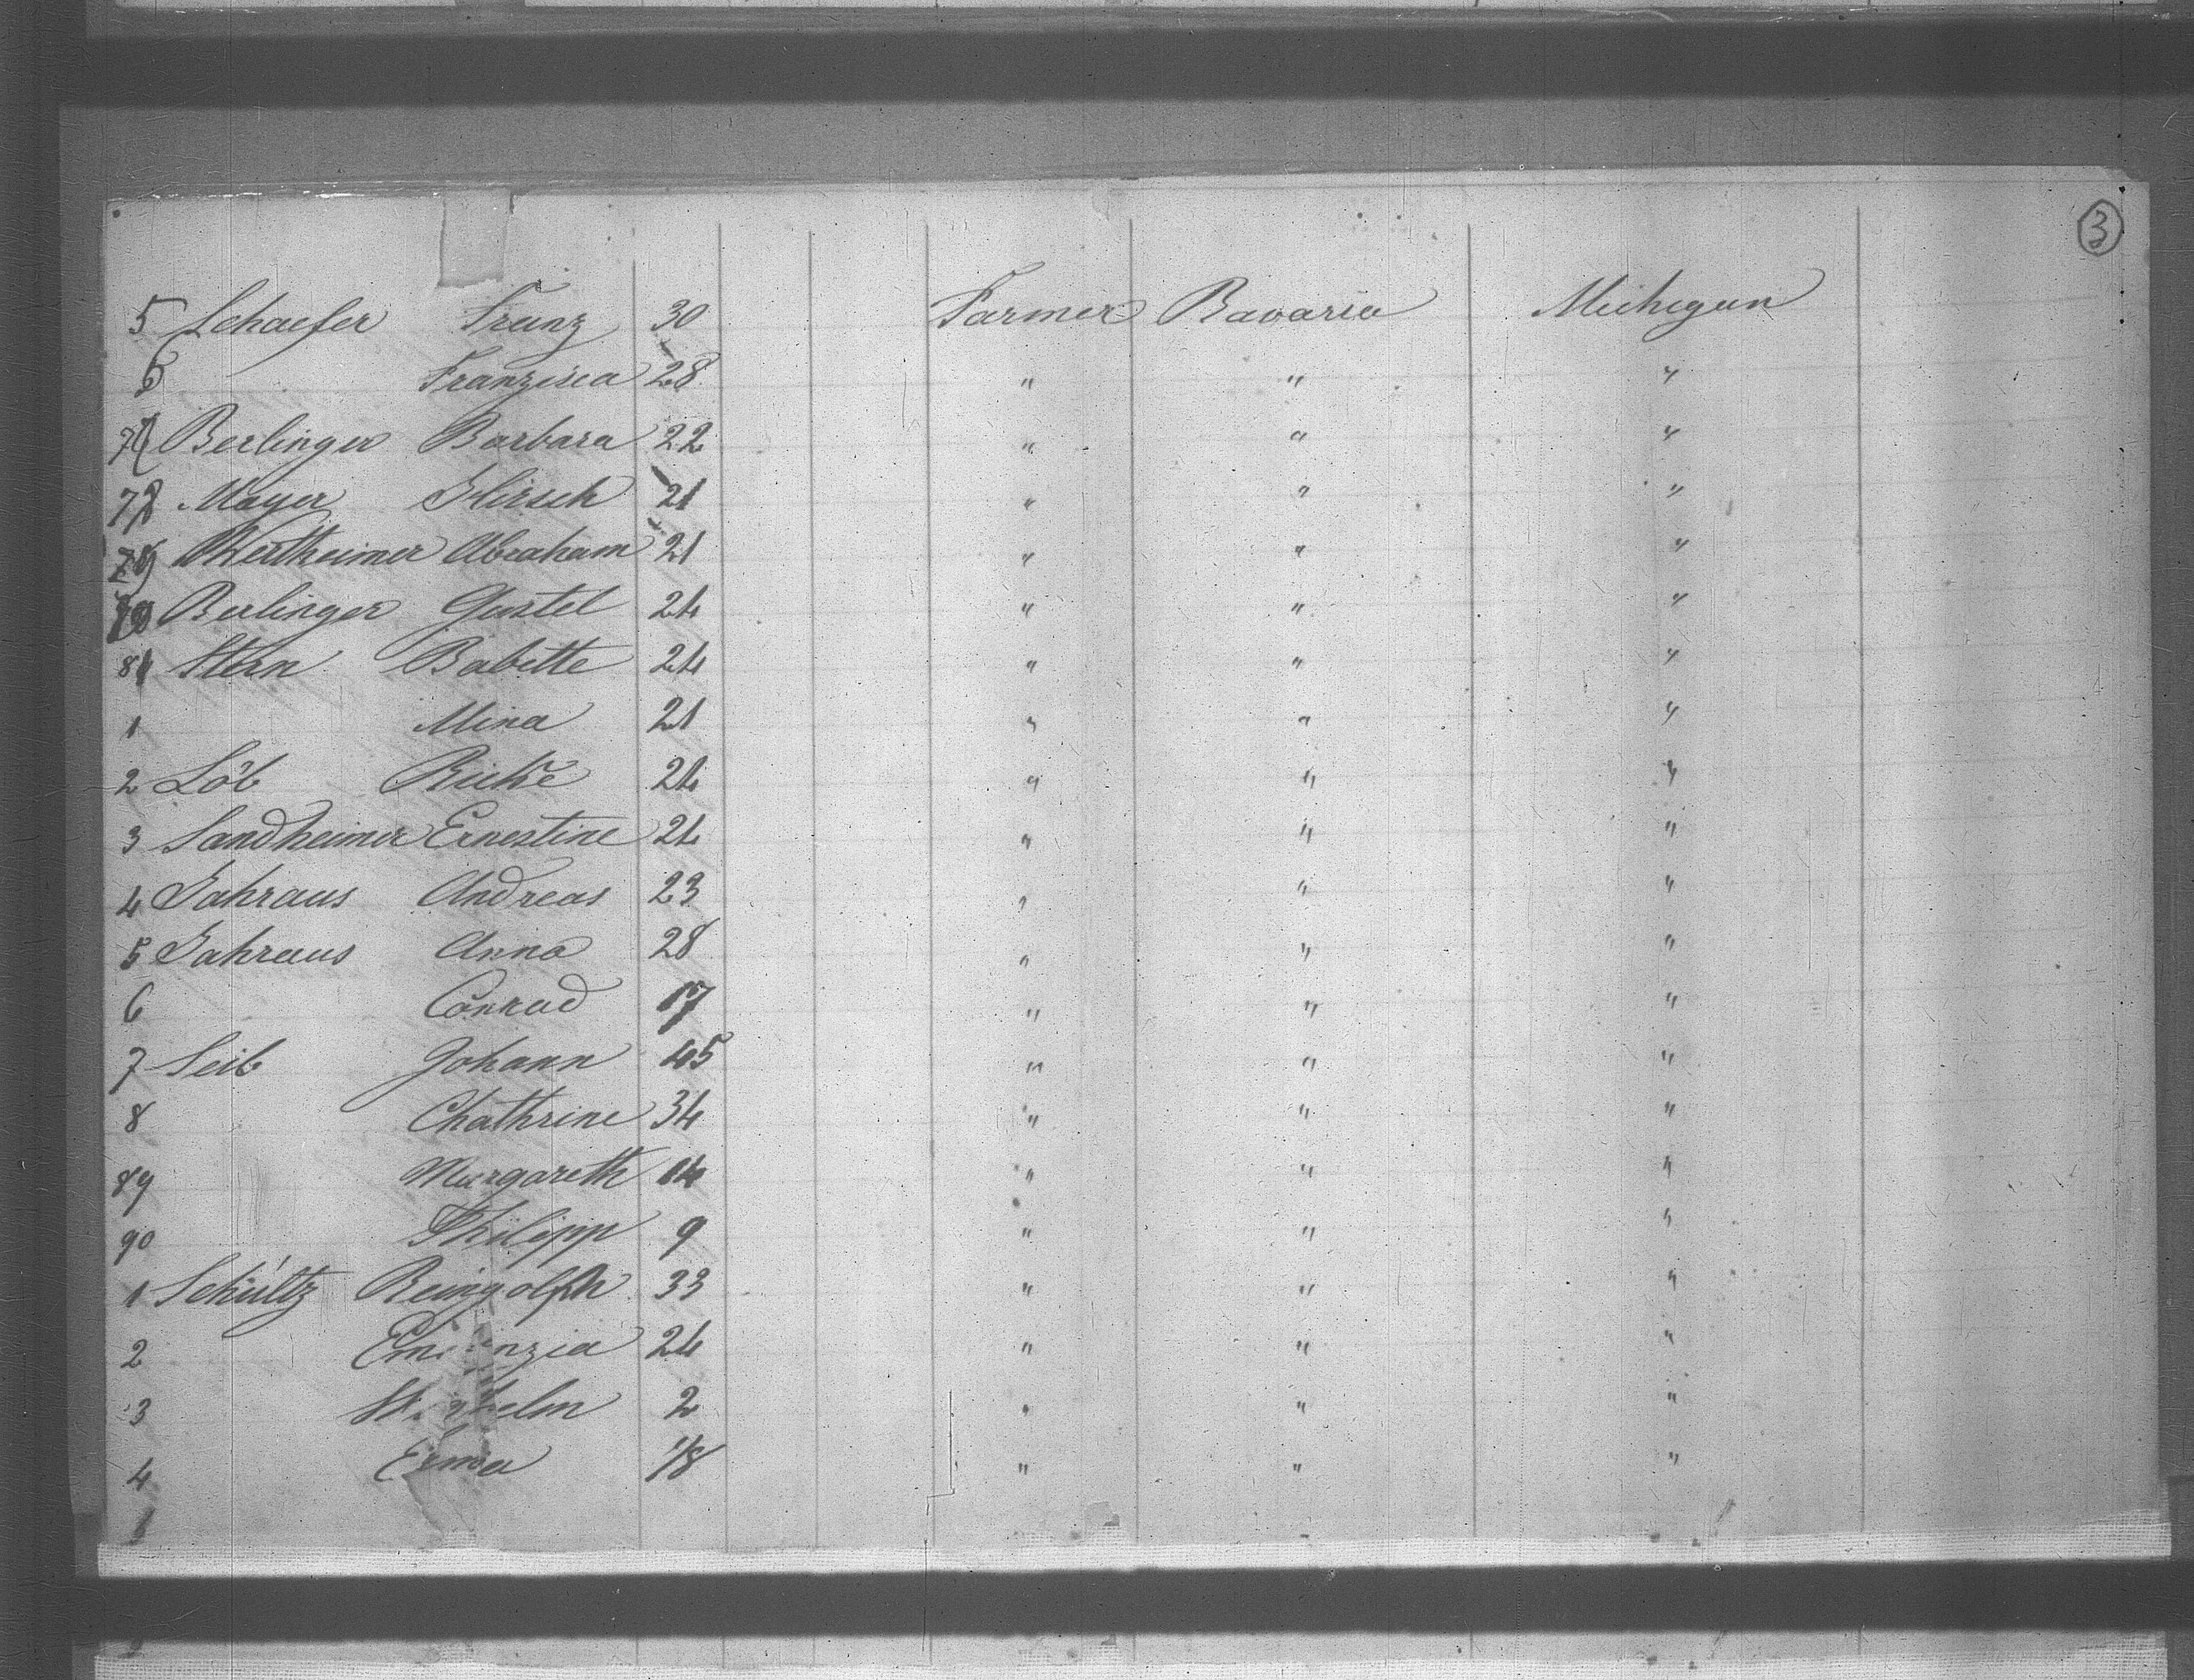 3
5 Schaefer Franz 30 Farmer Bavaria Michigan
6 Franzisca 28 " " "
77 Berlinger Barbara 22 " " "
78 Mayer Hirsch 21 " " "
79 Wertheimer Abraham 21 " " "
Berlinger Gustel 24 " " "
81 Stern Babette 24 " " "
1 Mina 21 " " "
2 Löb Ricke 24 " " "
3 Sandheimer Ernestine 24 " " "
4 Jahraus Andreas 23 " " "
5 Jahraus Anna 28 " " "
6 Conrad 17 " " "
7 Seib Johann 45 " " "
8 Chathrine 34 " " "
89 Margareth 14 " " "
90 Philipp 9 " " "
1 Schultz Reingolph 33 " " "
2 24 " " "
3 2 " " "
4 18 " " "